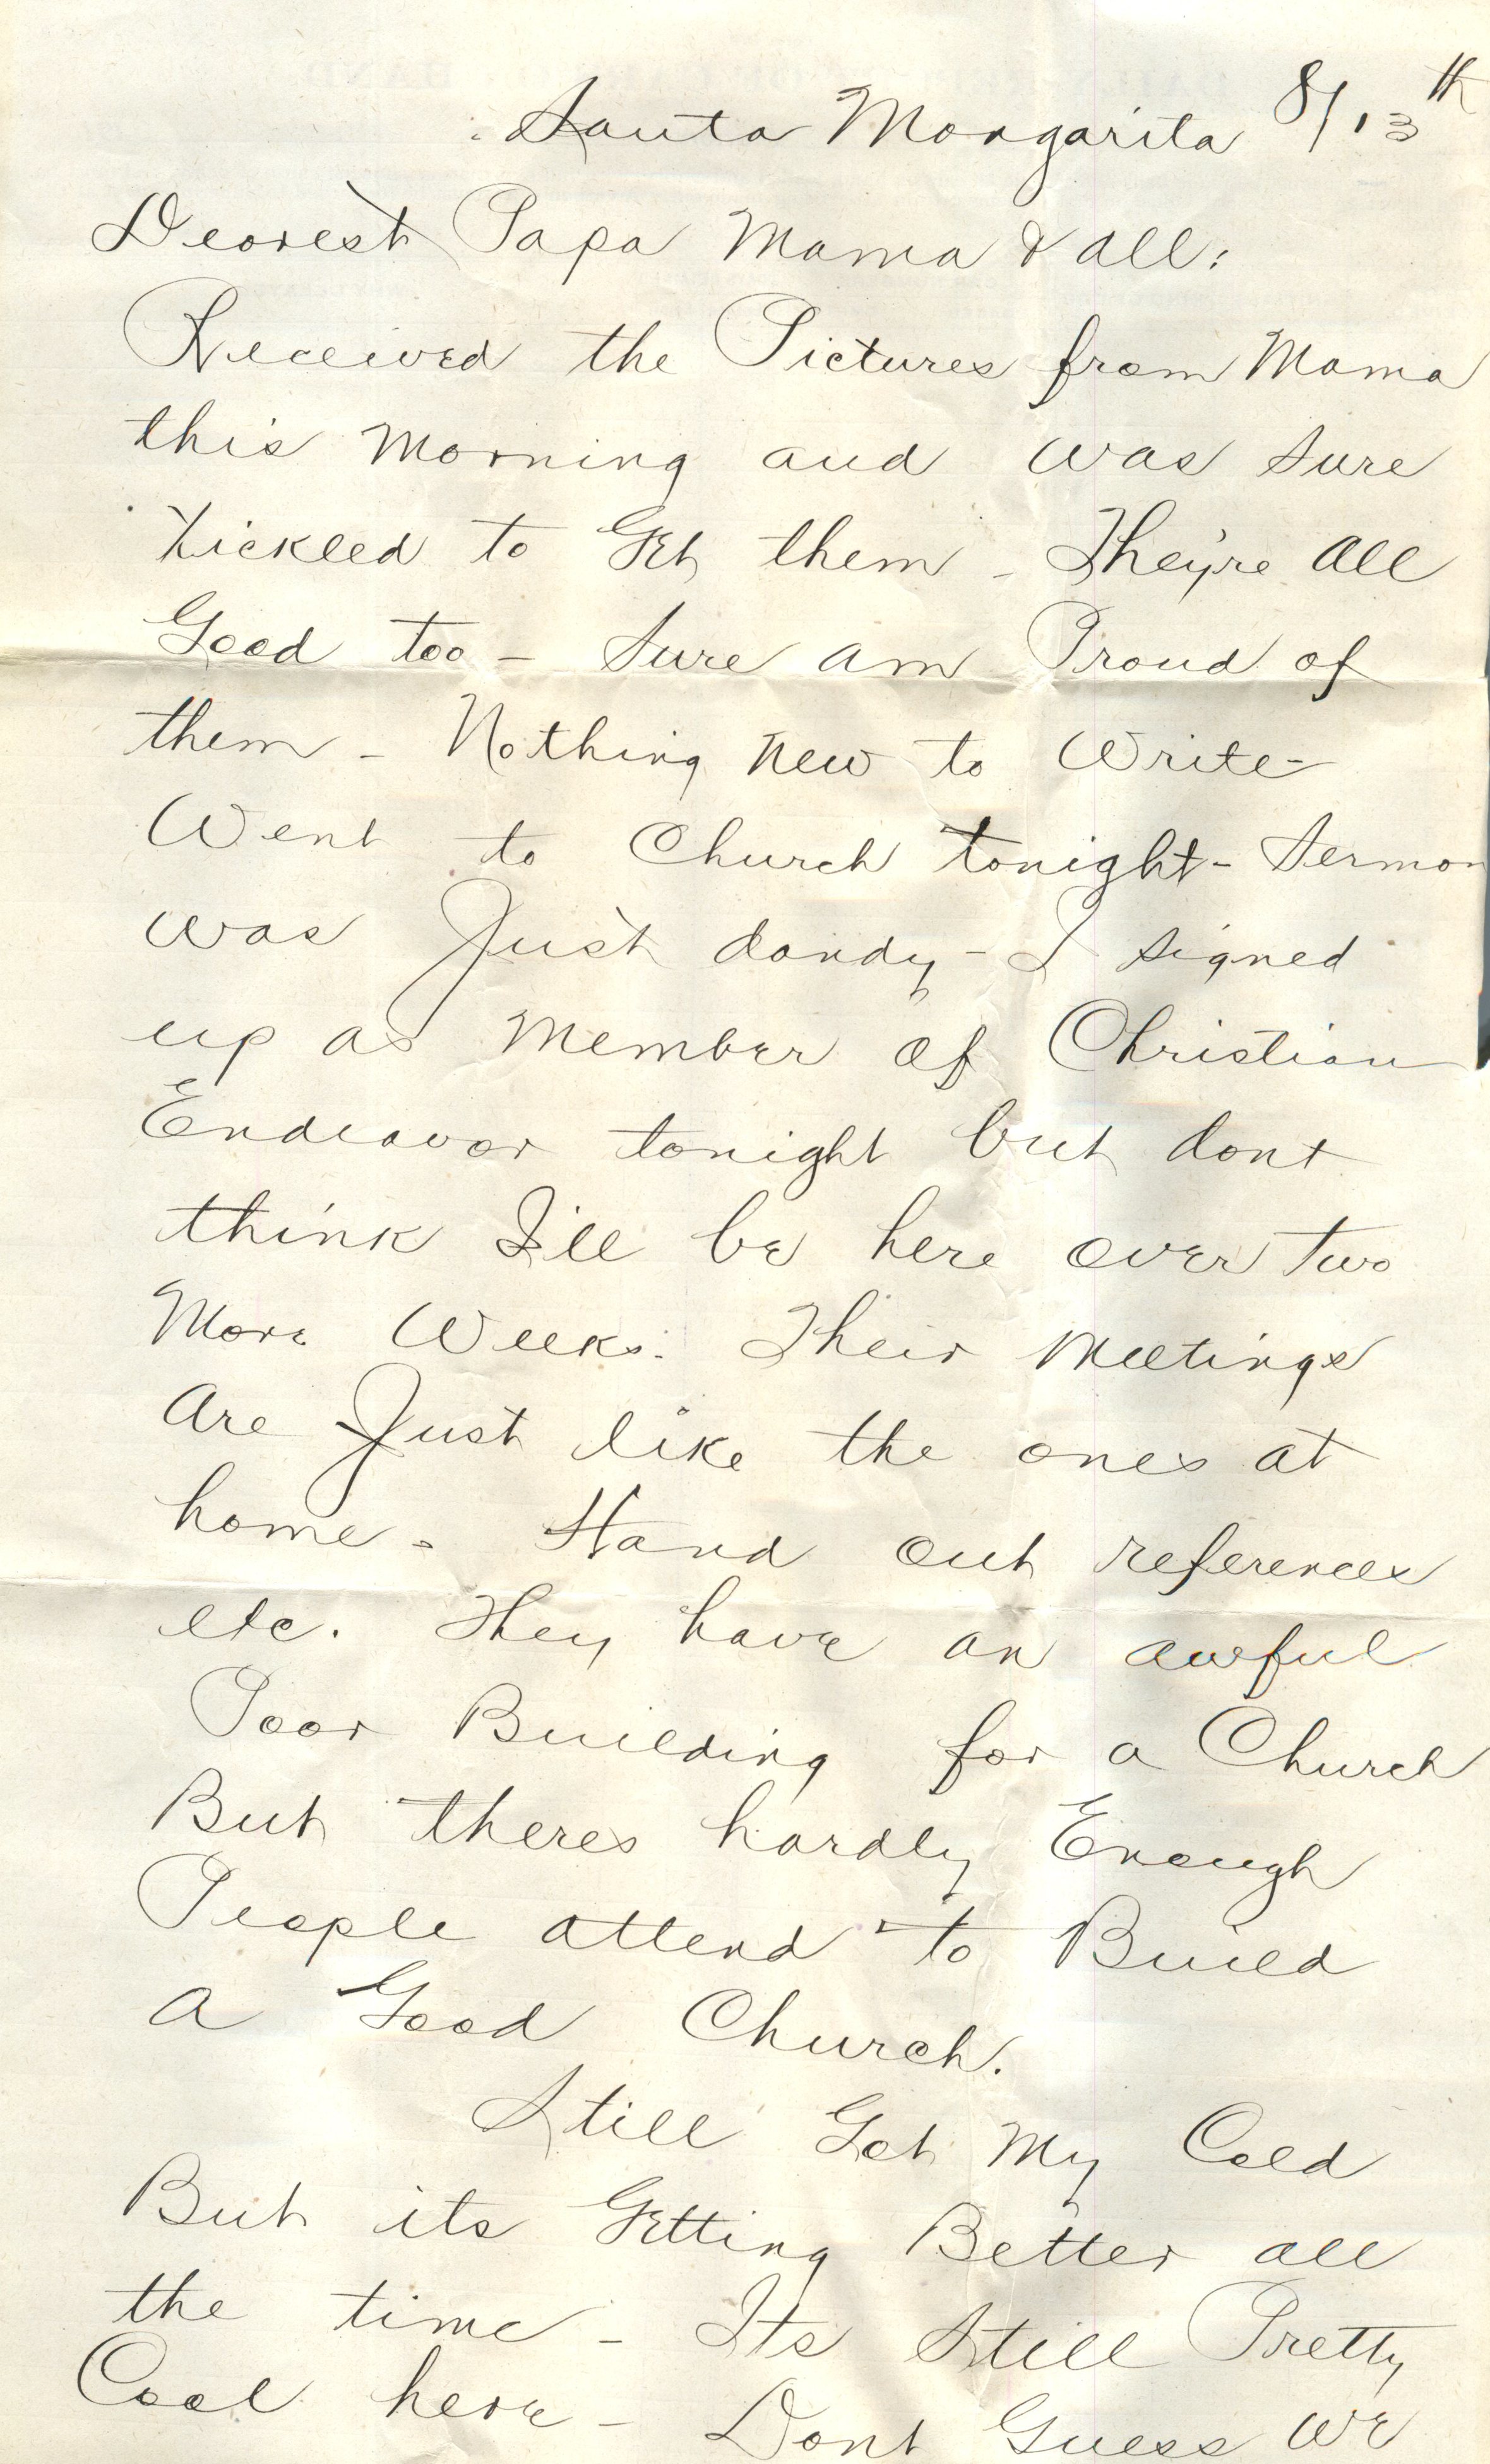 Santa Margarita 8/13th
Dearest Papa Mama & all:
Received the Pictures from Mama
this Morning and was sure
tickled to Get them - They're all
Good too - Sure am Proud of
them - Nothing New to Write -
Went to Church tonight - Sermon
was Just dandy - I signed
up as Member of Christian
Endeavor tonight but dont
think I'll be here over two
More Weeks. Their Meetings
are Just like the ones at
home - Hand out references
etc. They have an awful
Poor Building for a Church
But theres hardly Enough
People attend to Build
a Good Church.
Still Got My Cold
But its Getting Better all
the time - Its Still Pretty
Cool here - Dont Guess we